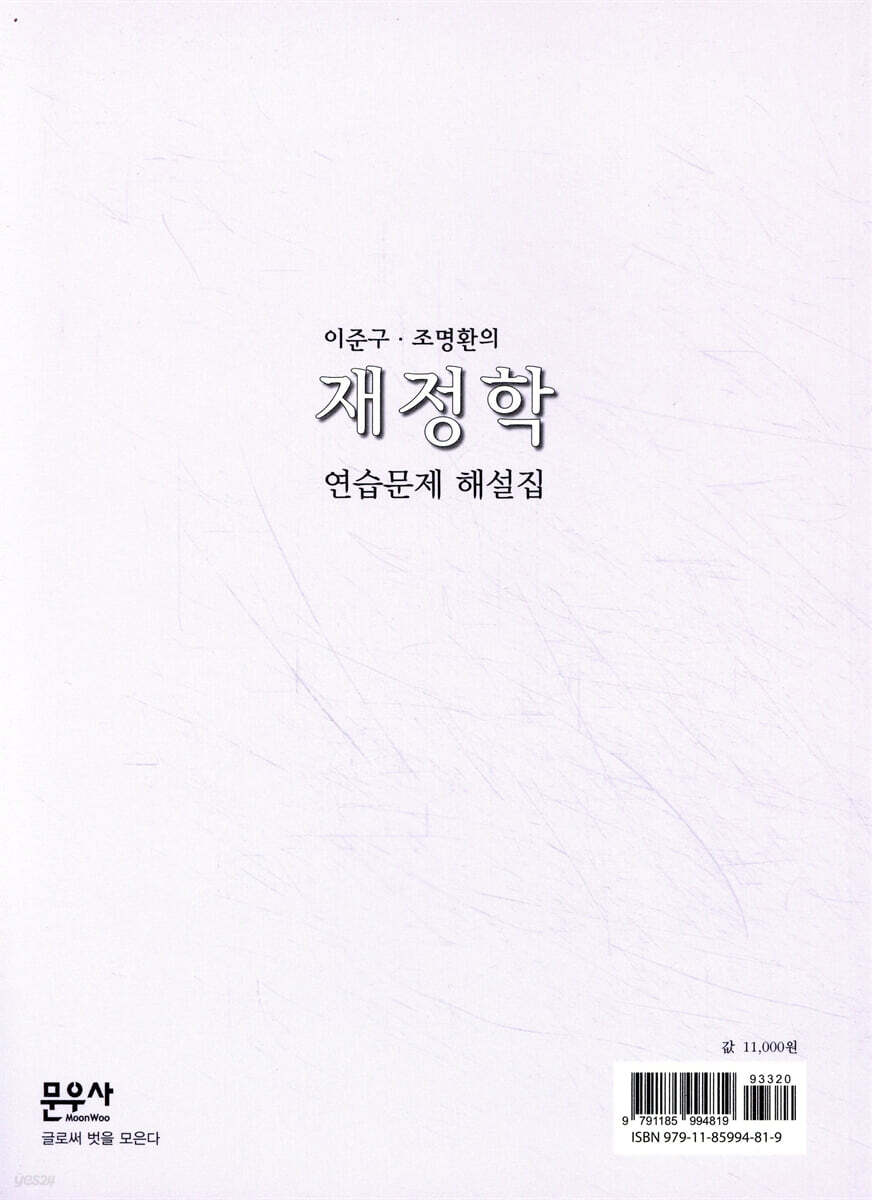 이준구 · 조명환의
재정학
연습문제 해설집
값 11,000원
93320
9 791185 994819
ISBN 979-11-85994-81-9
문우사
MoonWoo
글로써 벗을 모은다
yes24